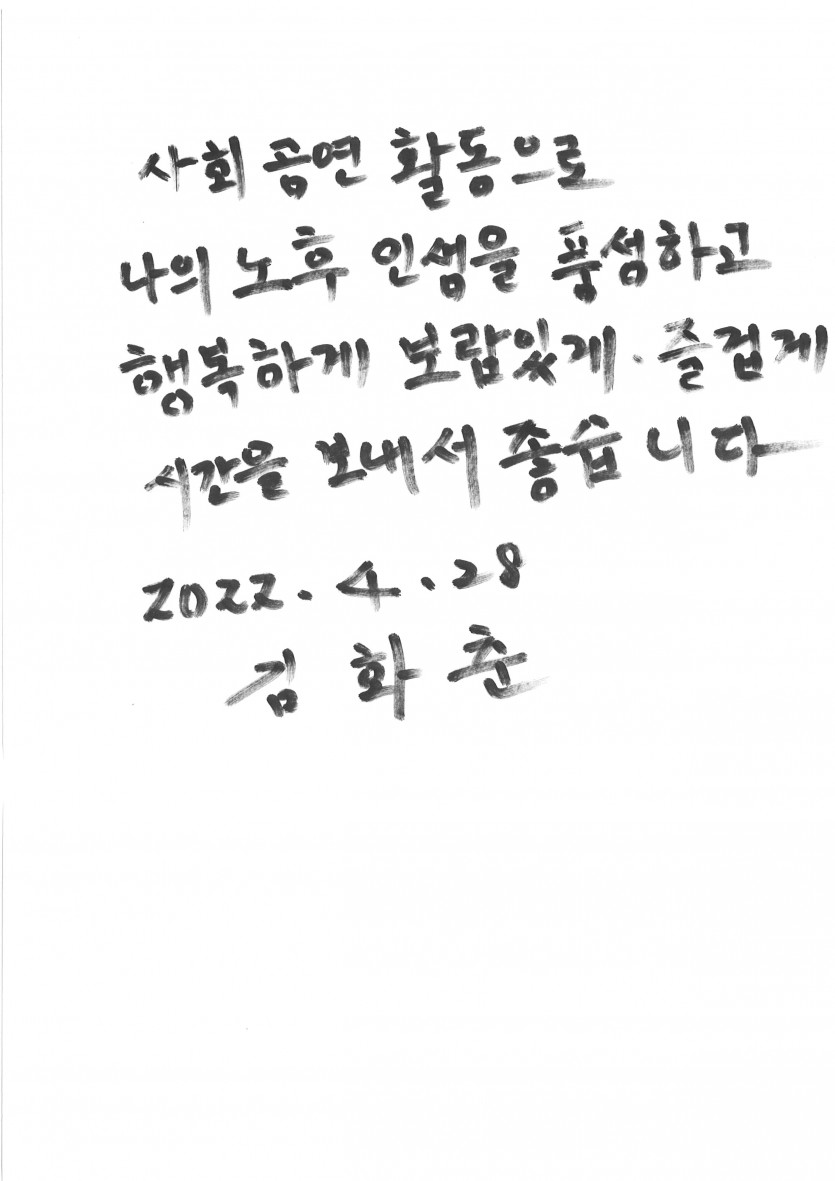 사회 공연 활동으로
나의 노후 인생을 풍성하고
행복하게 보람있게·즐겁게
시간을 보내서 좋습니다
2022. 4. 28
김화춘